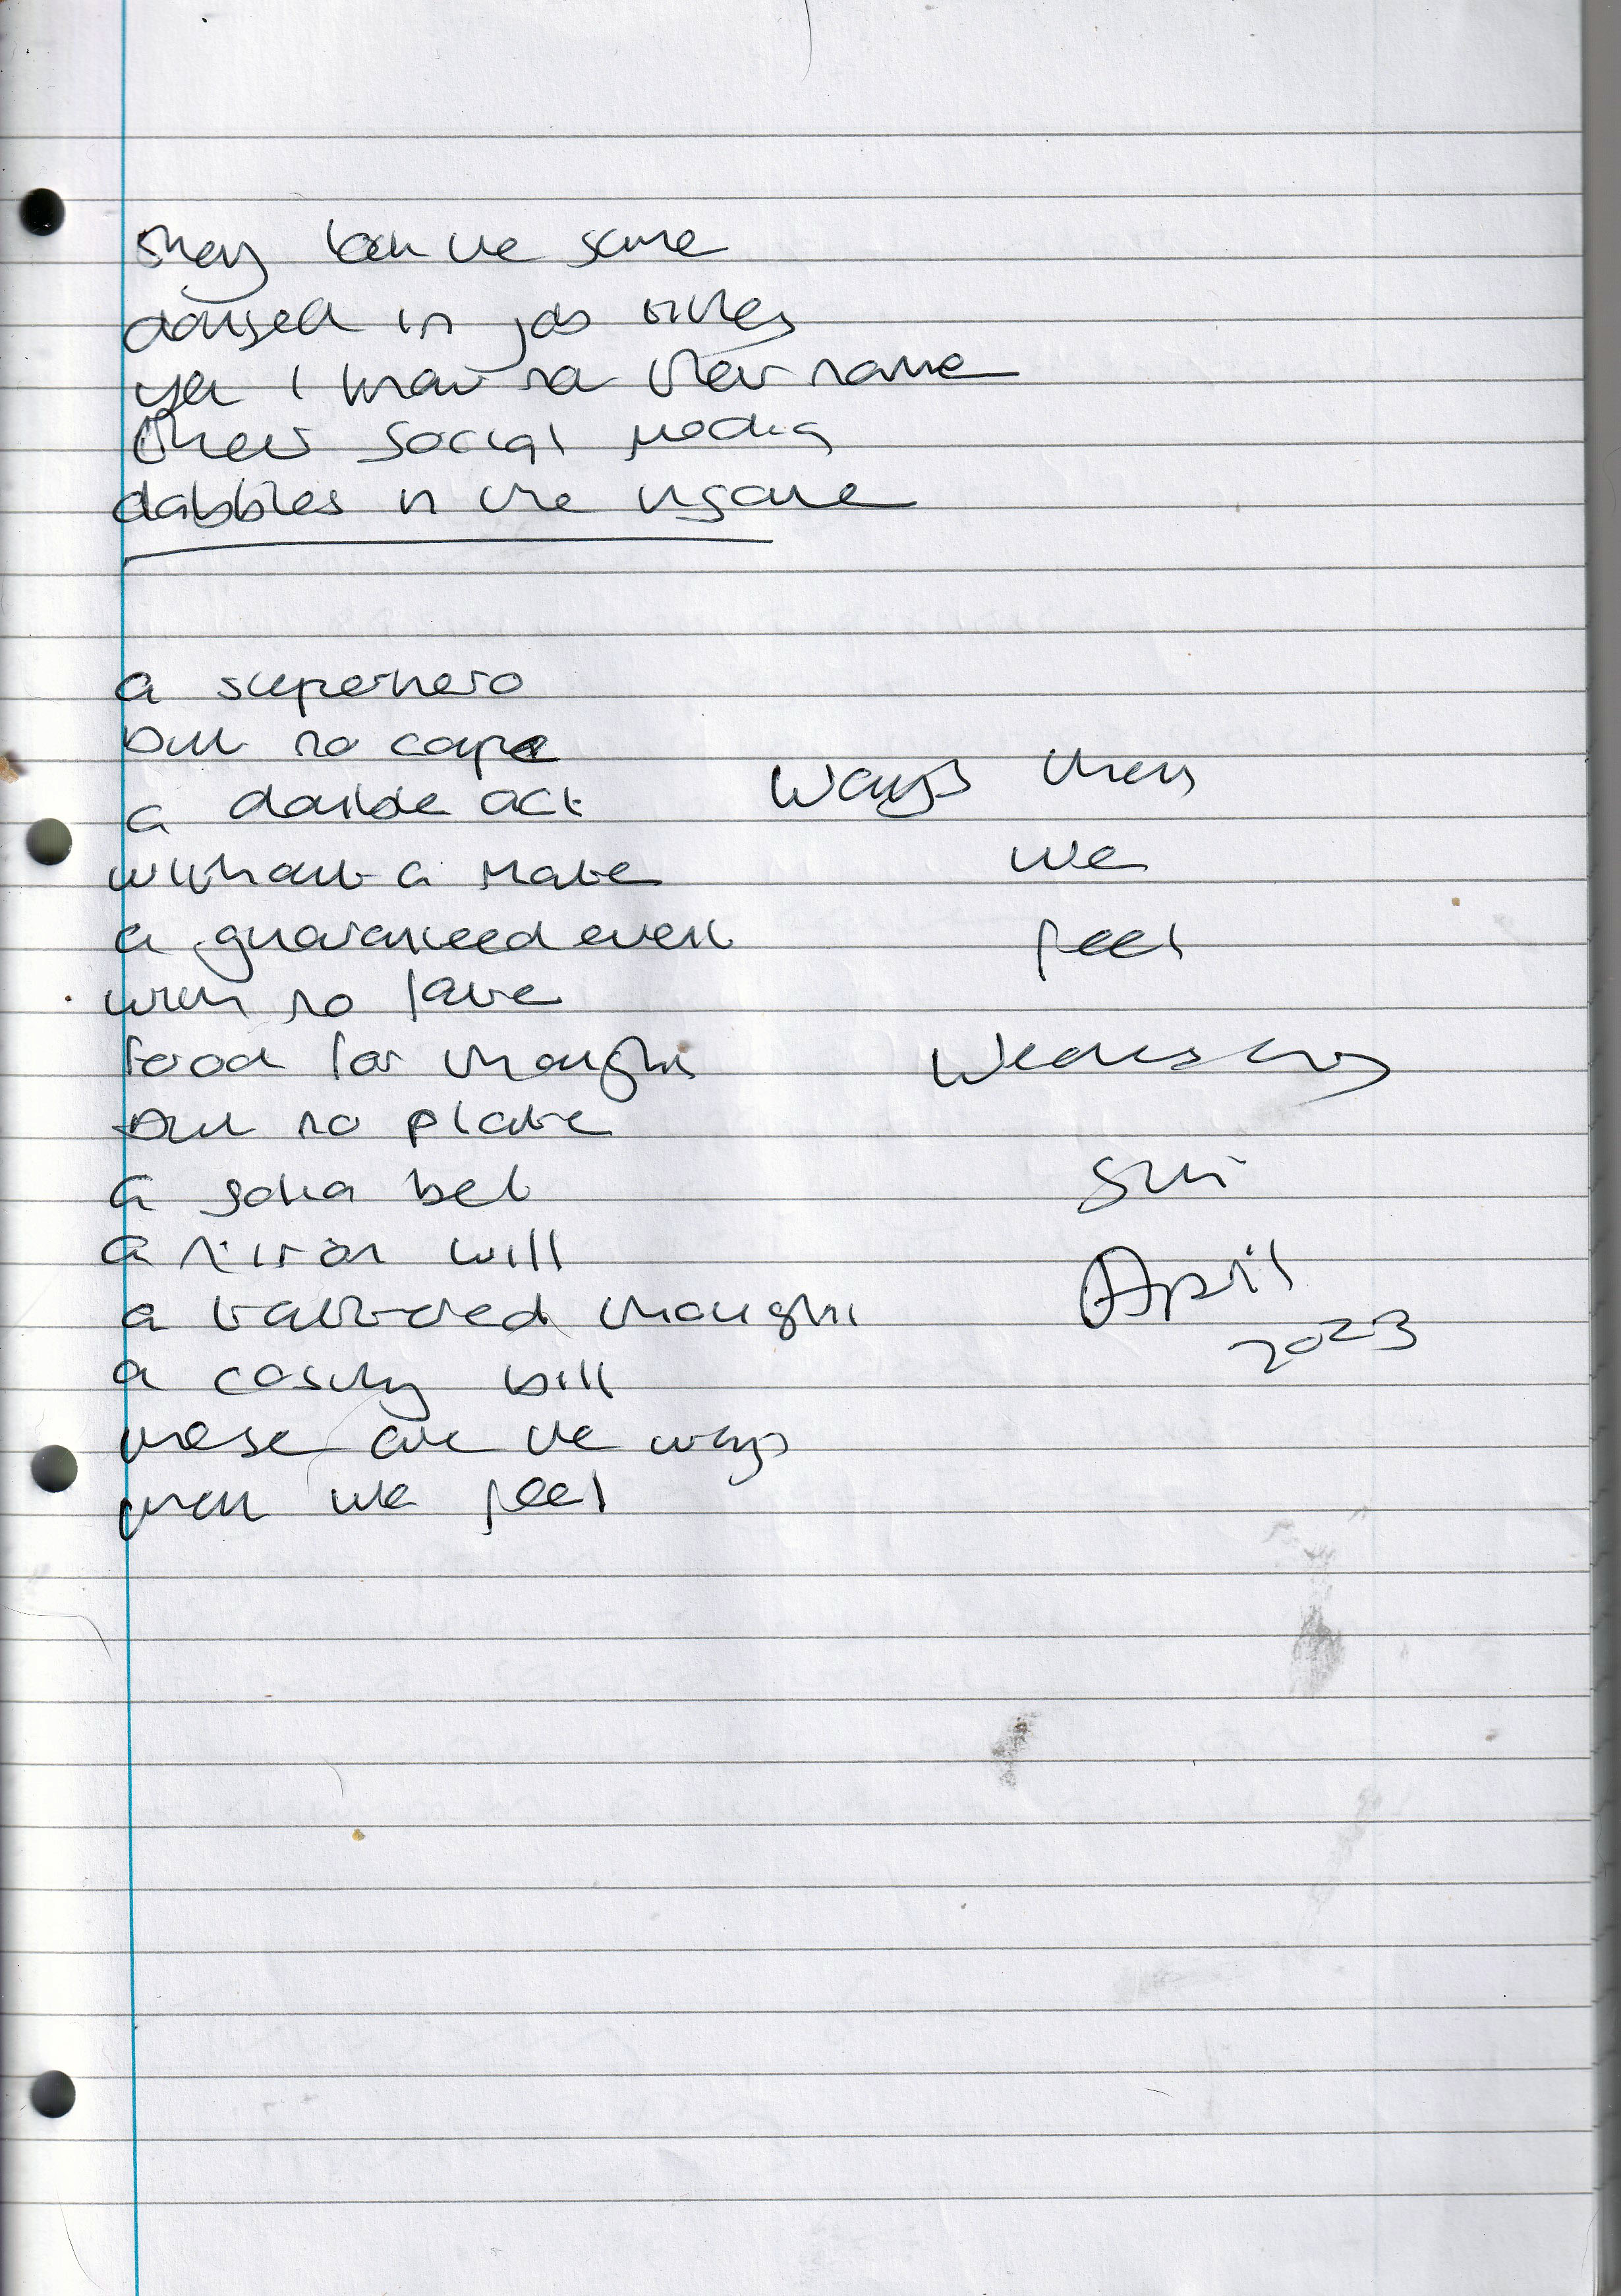 they look the same
doused in job titles
yet I know not their name
their social media
dabbles in the insane
a superhero
but no cape
a double act
without a mate
a guaranteed event
with no fate
food for thought
but no plate
a solid bet
a iron will
a tattered thought
a costly bill
these are the ways
then we feel
Ways then
we
feel
Wednesday
5th
April
2023